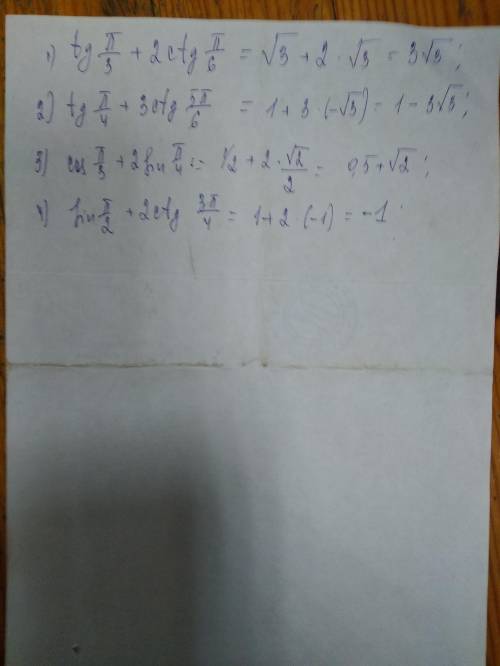 1) tg π/3 + 2ctg π/6 = √3 + 2 · √3 = 3√3;
2) tg π/4 + 3ctg 5π/6 = 1 + 3 · (-√3) = 1 - 3√3;
3) cos π/3 + 2sin π/4 = 1/2 + 2 · √2/2 = 0,5 + √2;
4) sin π/2 + 2ctg 3π/4 = 1 + 2 · (-1) = -1.